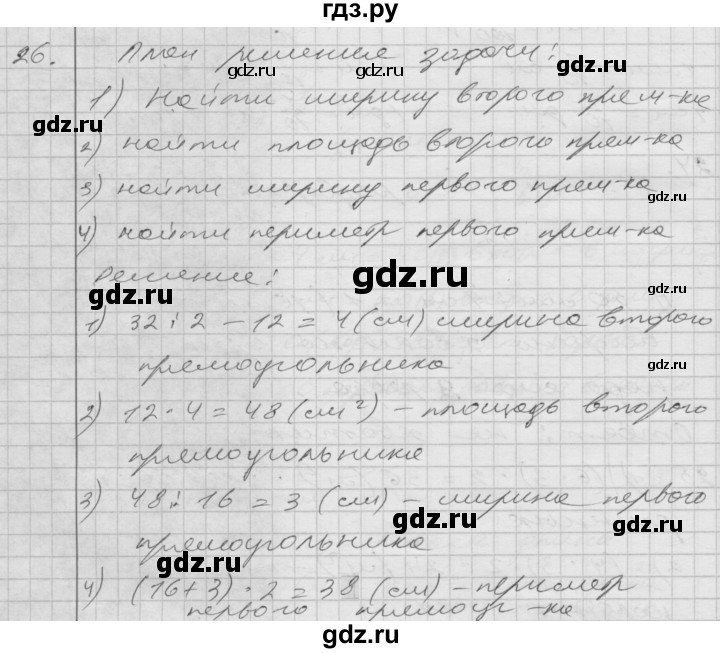 гдз.ру
26. План решения задачи:
gdz.ru gdz.ru
1) Найти ширину второго прям-ка
gdz.ru
2) найти площадь второго прям-ка
3) найти ширину первого прям-ка
gdz.ru
4) найти периметр первого прям-ка
Решение:
gdz.ru
gdz.ru
gdz.ru
1) 32:2-12=4(см) ширина второго
прямоугольника
gdz.ru
2) 12·4=48(см²) - площадь второго
прямоугольника
3) 48:16=3(см) - ширина первого
gdz.ru
gdz.ru
прямоугольника
gdz.ru
4) (16+3)·2=38(см) - периметр
первого прямоуг-ка
gdz.ru
gdz.ru
gdz.ru